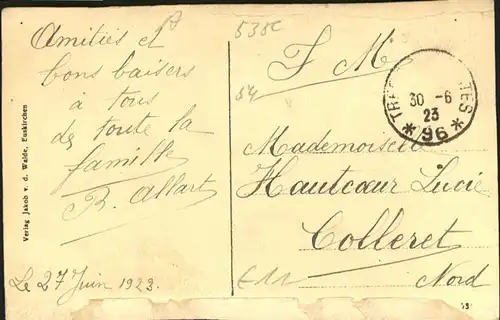 Amitiés et
bons baisers
à tous
de toute la
famille
B. Allart
Le 27 Juin 1923
Verlag Jakob v. d. Walde, Euskirchen
535c
54
F M
30 -6
23
* 96 *
Mademoiselle
Hautcœur Lucie
Colleret
Nord
E11